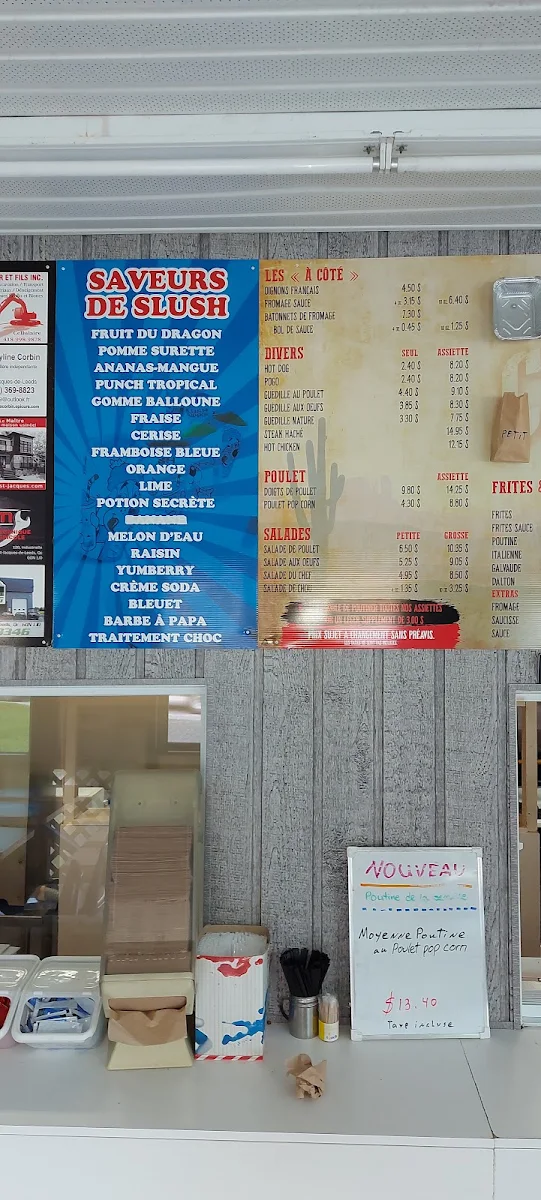 R ET FILS INC.
418.998.3878
yline Corbin
cques-de-Leeds
) 369-8823
st-jacques.com
SAVEURS
DE SLUSH
FRUIT DU DRAGON
POMME SURETTE
ANANAS-MANGUE
PUNCH TROPICAL
GOMME BALLOUNE
FRAISE
CERISE
FRAMBOISE BLEUE
ORANGE
LIME
POTION SECRÈTE
MELON D'EAU
RAISIN
YUMBERRY
CRÈME SODA
BLEUET
BARBE À PAPA
TRAITEMENT CHOC
LES « À CÔTÉ »
OIGNONS FRANÇAIS 4.50 $
FROMAGE SAUCE 3.15 $ 6.40 $
BATONNETS DE FROMAGE 7.30 $
BOL DE SAUCE 0.45 $ 1.25 $
DIVERS SEUL ASSIETTE
HOT DOG 2.40 $ 8.20 $
POGO 2.40 $ 8.20 $
GUEDILLE AU POULET 4.40 $ 9.10 $
GUEDILLE AUX OEUFS 3.85 $ 8.30 $
GUEDILLE NATURE 3.30 $ 7.75 $
STEAK HACHÉ 14.95 $
HOT CHICKEN 12.15 $
POULET ASSIETTE
DOIGTS DE POULET 9.80 $ 14.25 $
POULET POP CORN 4.30 $ 8.80 $
SALADES PETITE GROSSE
SALADE DE POULET 6.50 $ 10.35 $
SALADE AUX OEUFS 5.25 $ 9.05 $
SALADE DU CHEF 4.95 $ 8.50 $
SALADE DE CHOU 1.35 $ 3.25 $
PRIX SUJET À CHANGEMENT SANS PRÉAVIS.
PETIT
FRITES &
FRITES
FRITES SAUCE
POUTINE
ITALIENNE
GALVAUDE
DALTON
EXTRAS
FROMAGE
SAUCISSE
SAUCE
NOUVEAU
Poutine de la semaine
Moyenne Poutine
au Poulet pop corn
$13.40
Taxe incluse